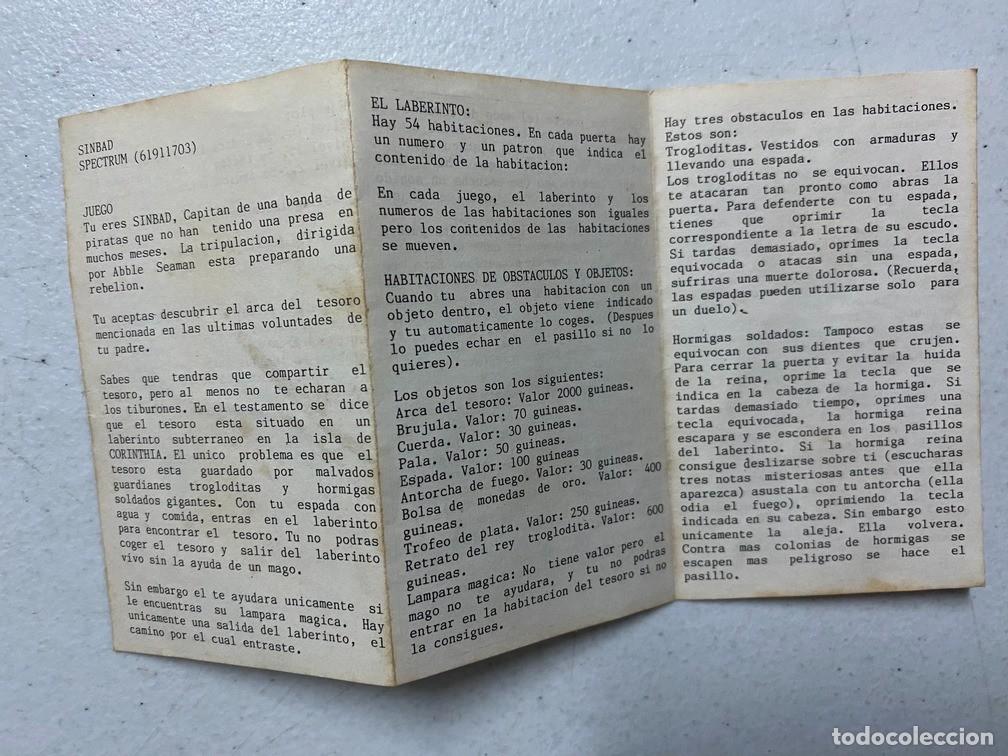 SINBAD
SPECTRUM (61911703)
JUEGO
Tu eres SINBAD, Capitan de una banda de
piratas que no han tenido una presa en
muchos meses. La tripulacion, dirigida
por Abble Seaman esta preparando una
rebelion.
Tu aceptas descubrir el arca del tesoro
mencionada en las ultimas voluntades de
tu padre.
Sabes que tendras que compartir el
tesoro, pero al menos no te echaran a
los tiburones. En el testamento se dice
que el tesoro esta situado en un
laberinto subterraneo en la isla de
CORINTHIA. El unico problema es que el
tesoro esta guardado por malvados
guardianes trogloditas y hormigas
soldados gigantes. Con tu espada con
agua y comida, entras en el laberinto
para encontrar el tesoro. Tu no podras
coger el tesoro y salir del laberinto
vivo sin la ayuda de un mago.
Sin embargo el te ayudara unicamente si
le encuentras su lampara magica. Hay
unicamente una salida del laberinto, el
camino por el cual entraste.
EL LABERINTO:
Hay 54 habitaciones. En cada puerta hay
un numero y un patron que indica el
contenido de la habitacion:
En cada juego, el laberinto y los
numeros de las habitaciones son iguales
pero los contenidos de las habitaciones
se mueven.
HABITACIONES DE OBSTACULOS Y OBJETOS:
Cuando tu abres una habitacion con un
objeto dentro, el objeto viene indicado
y tu automaticamente lo coges. (Despues
lo puedes echar en el pasillo si no lo
quieres).
Los objetos son los siguientes:
Arca del tesoro: Valor 2000 guineas.
Brujula. Valor: 70 guineas.
Cuerda. Valor: 30 guineas.
Pala. Valor: 50 guineas.
Espada. Valor: 100 guineas
Antorcha de fuego. Valor: 30 guineas.
Bolsa de monedas de oro. Valor: 400
guineas.
Trofeo de plata. Valor: 250 guineas.
Retrato del rey troglodita. Valor: 600
guineas.
Lampara magica: No tiene valor pero el
mago no te ayudara, y tu no podras
entrar en la habitacion del tesoro si no
la consigues.
Hay tres obstaculos en las habitaciones.
Estos son:
Trogloditas. Vestidos con armaduras y
llevando una espada.
Los trogloditas no se equivocan. Ellos
te atacaran tan pronto como abras la
puerta. Para defenderte con tu espada,
tienes que oprimir la tecla
correspondiente a la letra de su escudo.
Si tardas demasiado, oprimes la tecla
equivocada o atacas sin una espada,
sufriras una muerte dolorosa. (Recuerda,
las espadas pueden utilizarse solo para
un duelo).
Hormigas soldados: Tampoco estas se
equivocan con sus dientes que crujen.
Para cerrar la puerta y evitar la huida
de la reina, oprime la tecla que se
indica en la cabeza de la hormiga. Si
tardas demasiado tiempo, oprimes una
tecla equivocada, la hormiga reina
escapara y se escondera en los pasillos
del laberinto. Si la hormiga reina
consigue deslizarse sobre ti (escucharas
tres notas misteriosas antes que ella
aparezca) asustala con tu antorcha (ella
odia el fuego), oprimiendo la tecla
indicada en su cabeza. Sin embargo esto
unicamente la aleja. Ella volvera.
Contra mas colonias de hormigas se
escapen mas peligroso se hace el
pasillo.
todocoleccion